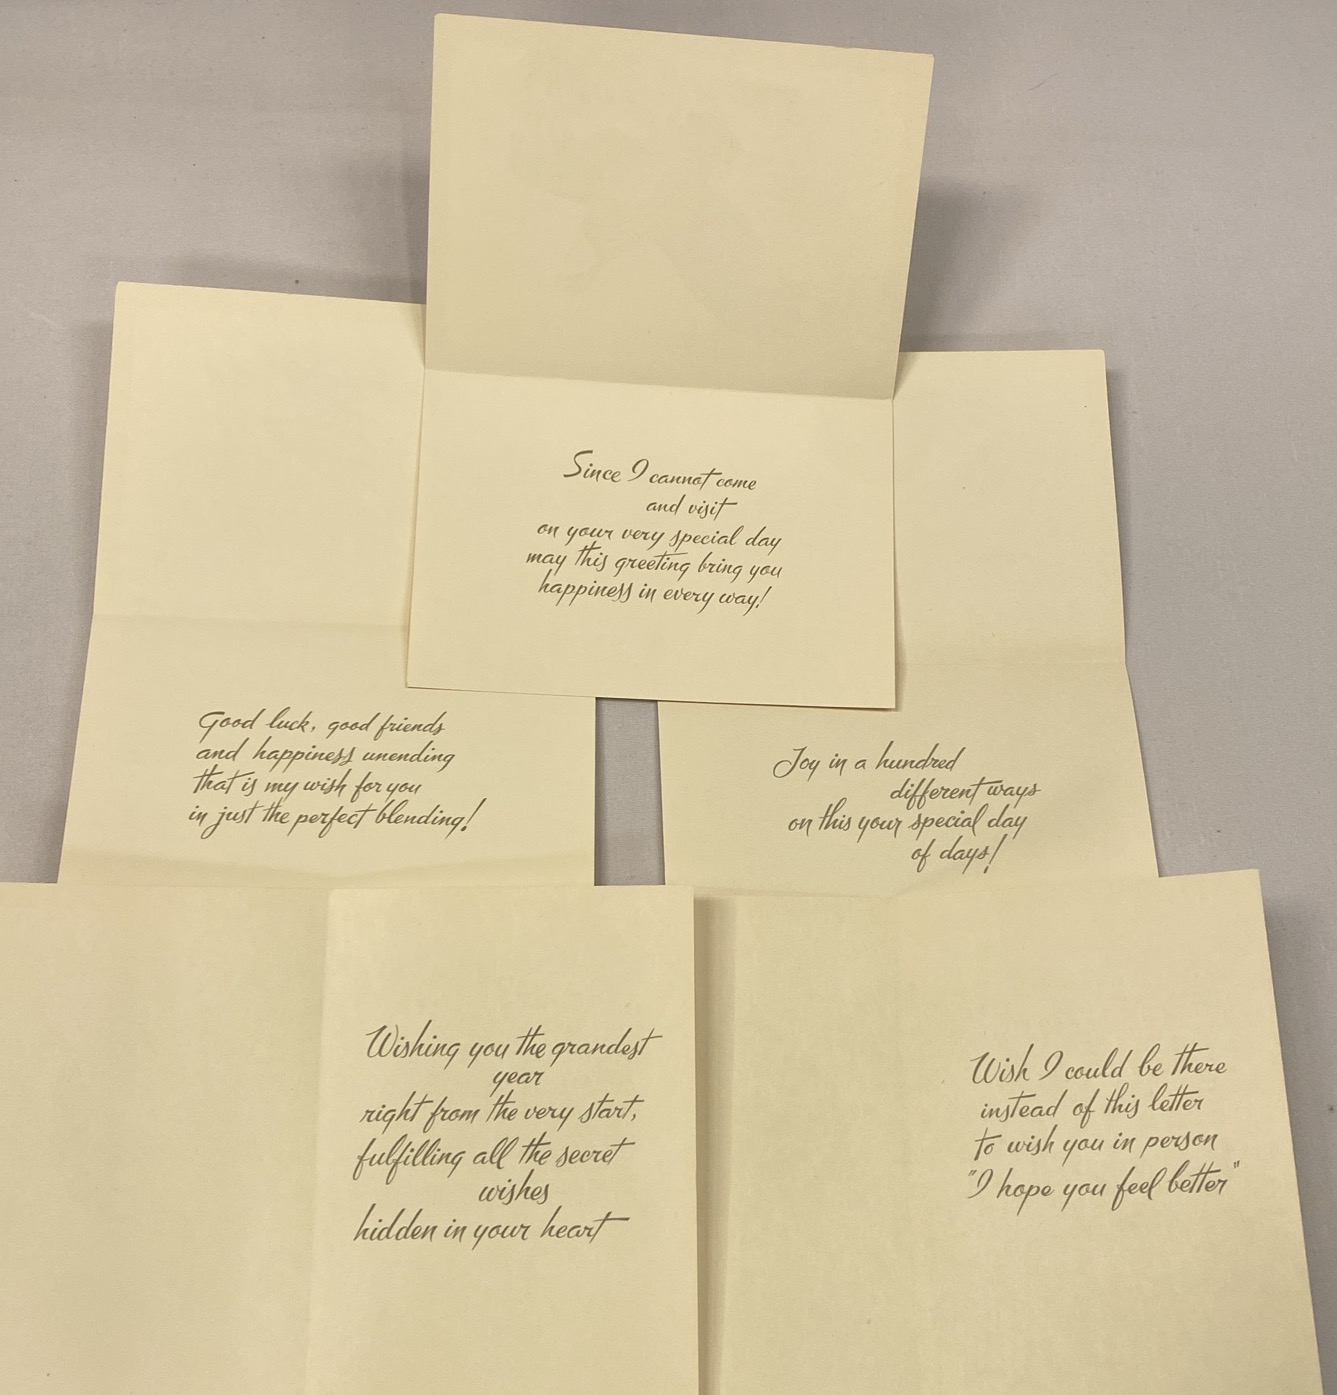 Since I cannot come
and visit
on your very special day
may this greeting bring you
happiness in every way!
Good luck, good friends
and happiness unending
that is my wish for you
in just the perfect blending!
Joy in a hundred
different ways
on this your special day
of days!
Wishing you the grandest
year
right from the very start,
fulfilling all the secret
wishes
hidden in your heart
Wish I could be there
instead of this letter
to wish you in person
"I hope you feel better"